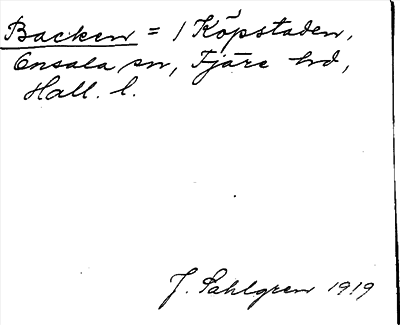 Backen = 1 Köpstaden,
Onsala sn, Fjäre hd,
Hall. l.
J. Sahlgren 1919